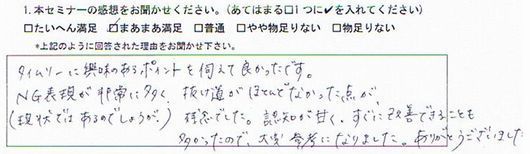 1. 本セミナーの感想をお聞かせください。(あてはまる□1つに✔を入れてください)
□たいへん満足 ☑まあまあ満足 □普通 □やや物足りない □物足りない
*上記のように回答された理由をお聞かせ下さい。
タイムリーに興味のあるポイントを伺えて良かったです。
NG表現が非常に多く、抜け道がほとんどなかった点が
(現状ではあるのでしょうが、) 残念でした。認知が甘く、すぐに改善できることも
多かったので、大変参考になりました。ありがとうございました